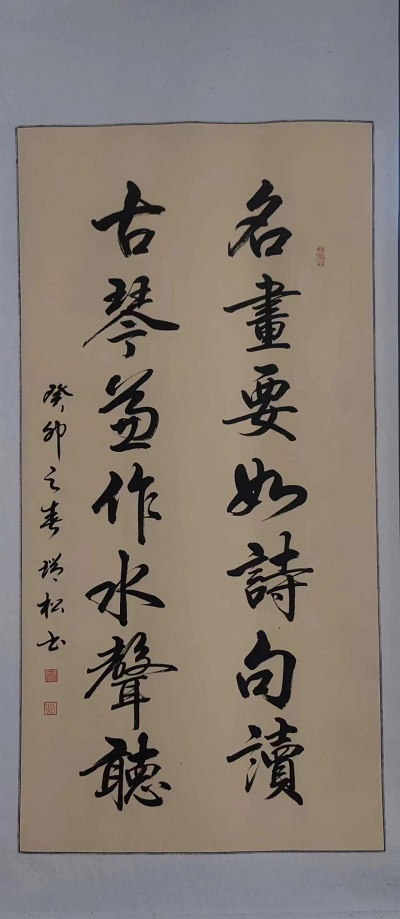 名畫要如詩句讀
古琴兼作水聲聽
癸卯之春 瑞松书